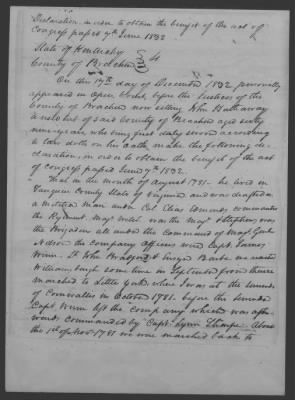 Declaration, in order to obtain the benefit of the act of
Congress passed 7th June 1832
State of Kentucky
County of Bracken
On this 17th day of December 1832 personally
appeared in Open Court before the Justices of the
County of Bracken now sitting John Hathaway
a resident of said County of Bracken aged sixty
nine years, who being first duly sworn according
to law doth on his oath make the following de-
claration, in order to obtain the benefit of the act
of Congress passed June 7th 1832.
That in the month of August 1781 he lived in
Fauquier County State of Virginia and was drafted as
a militia man under Col Elias Edmonds commandant
the Regiment Maj Welch was the Maj Stephens was
the Brigadier all under the Command of Maj Genl
Nelson the company officers were Capt. James
Winn Lt John Ensign Barbe we marched
Williamsburgh some time in September from thence
marched to Little York where I was at the surrender
of Cornwallis in October 1781. before the surrender
Capt Winn left the company which was after-
wards commanded by Capt. About
the 1st of Nov 1781 we were marched back to